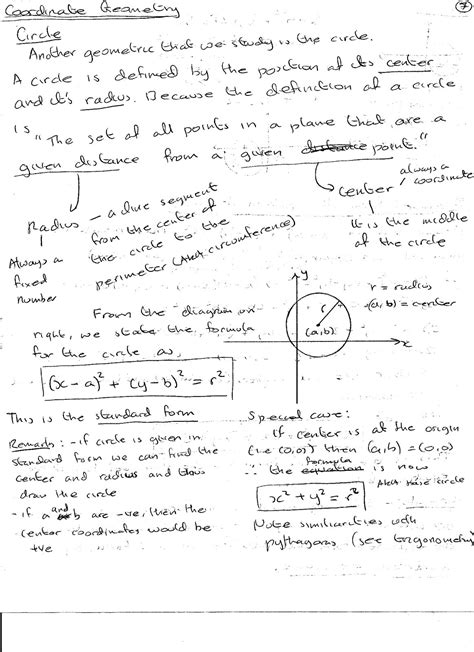 Coordinate Geometry
7
Circle
Another geometric that we study is the circle.
A circle is defined by the position of its center
and it's radius. Because the definition of a circle
is "The set of all points in a plane that are a
given distance from a given distance point."
Radius - a line segment
from the center of
the circle to the
perimeter (AKA circumference)
Always a
fixed
number
center
always a
coordinate
It is the middle
of the circle
y
r = radius
(a, b) = center
r
(a,b)
x
From the diagram on
right, we state the formula
for the circle as,
(x - a)² + (y - b)² = r²
This is the standard form
Remark: - if circle is given in
standard form we can find the
center and radius and thus
draw the circle
- if a and b are -ve, then the
center coordinates would be
+ve
Special case:
If center is at the origin
(i.e (0,0)) then (a,b) = (0,0)
∴ the equation formula is now
x² + y² = r²
AKA circle
Note similarities with
pythagoras (see trigonometry